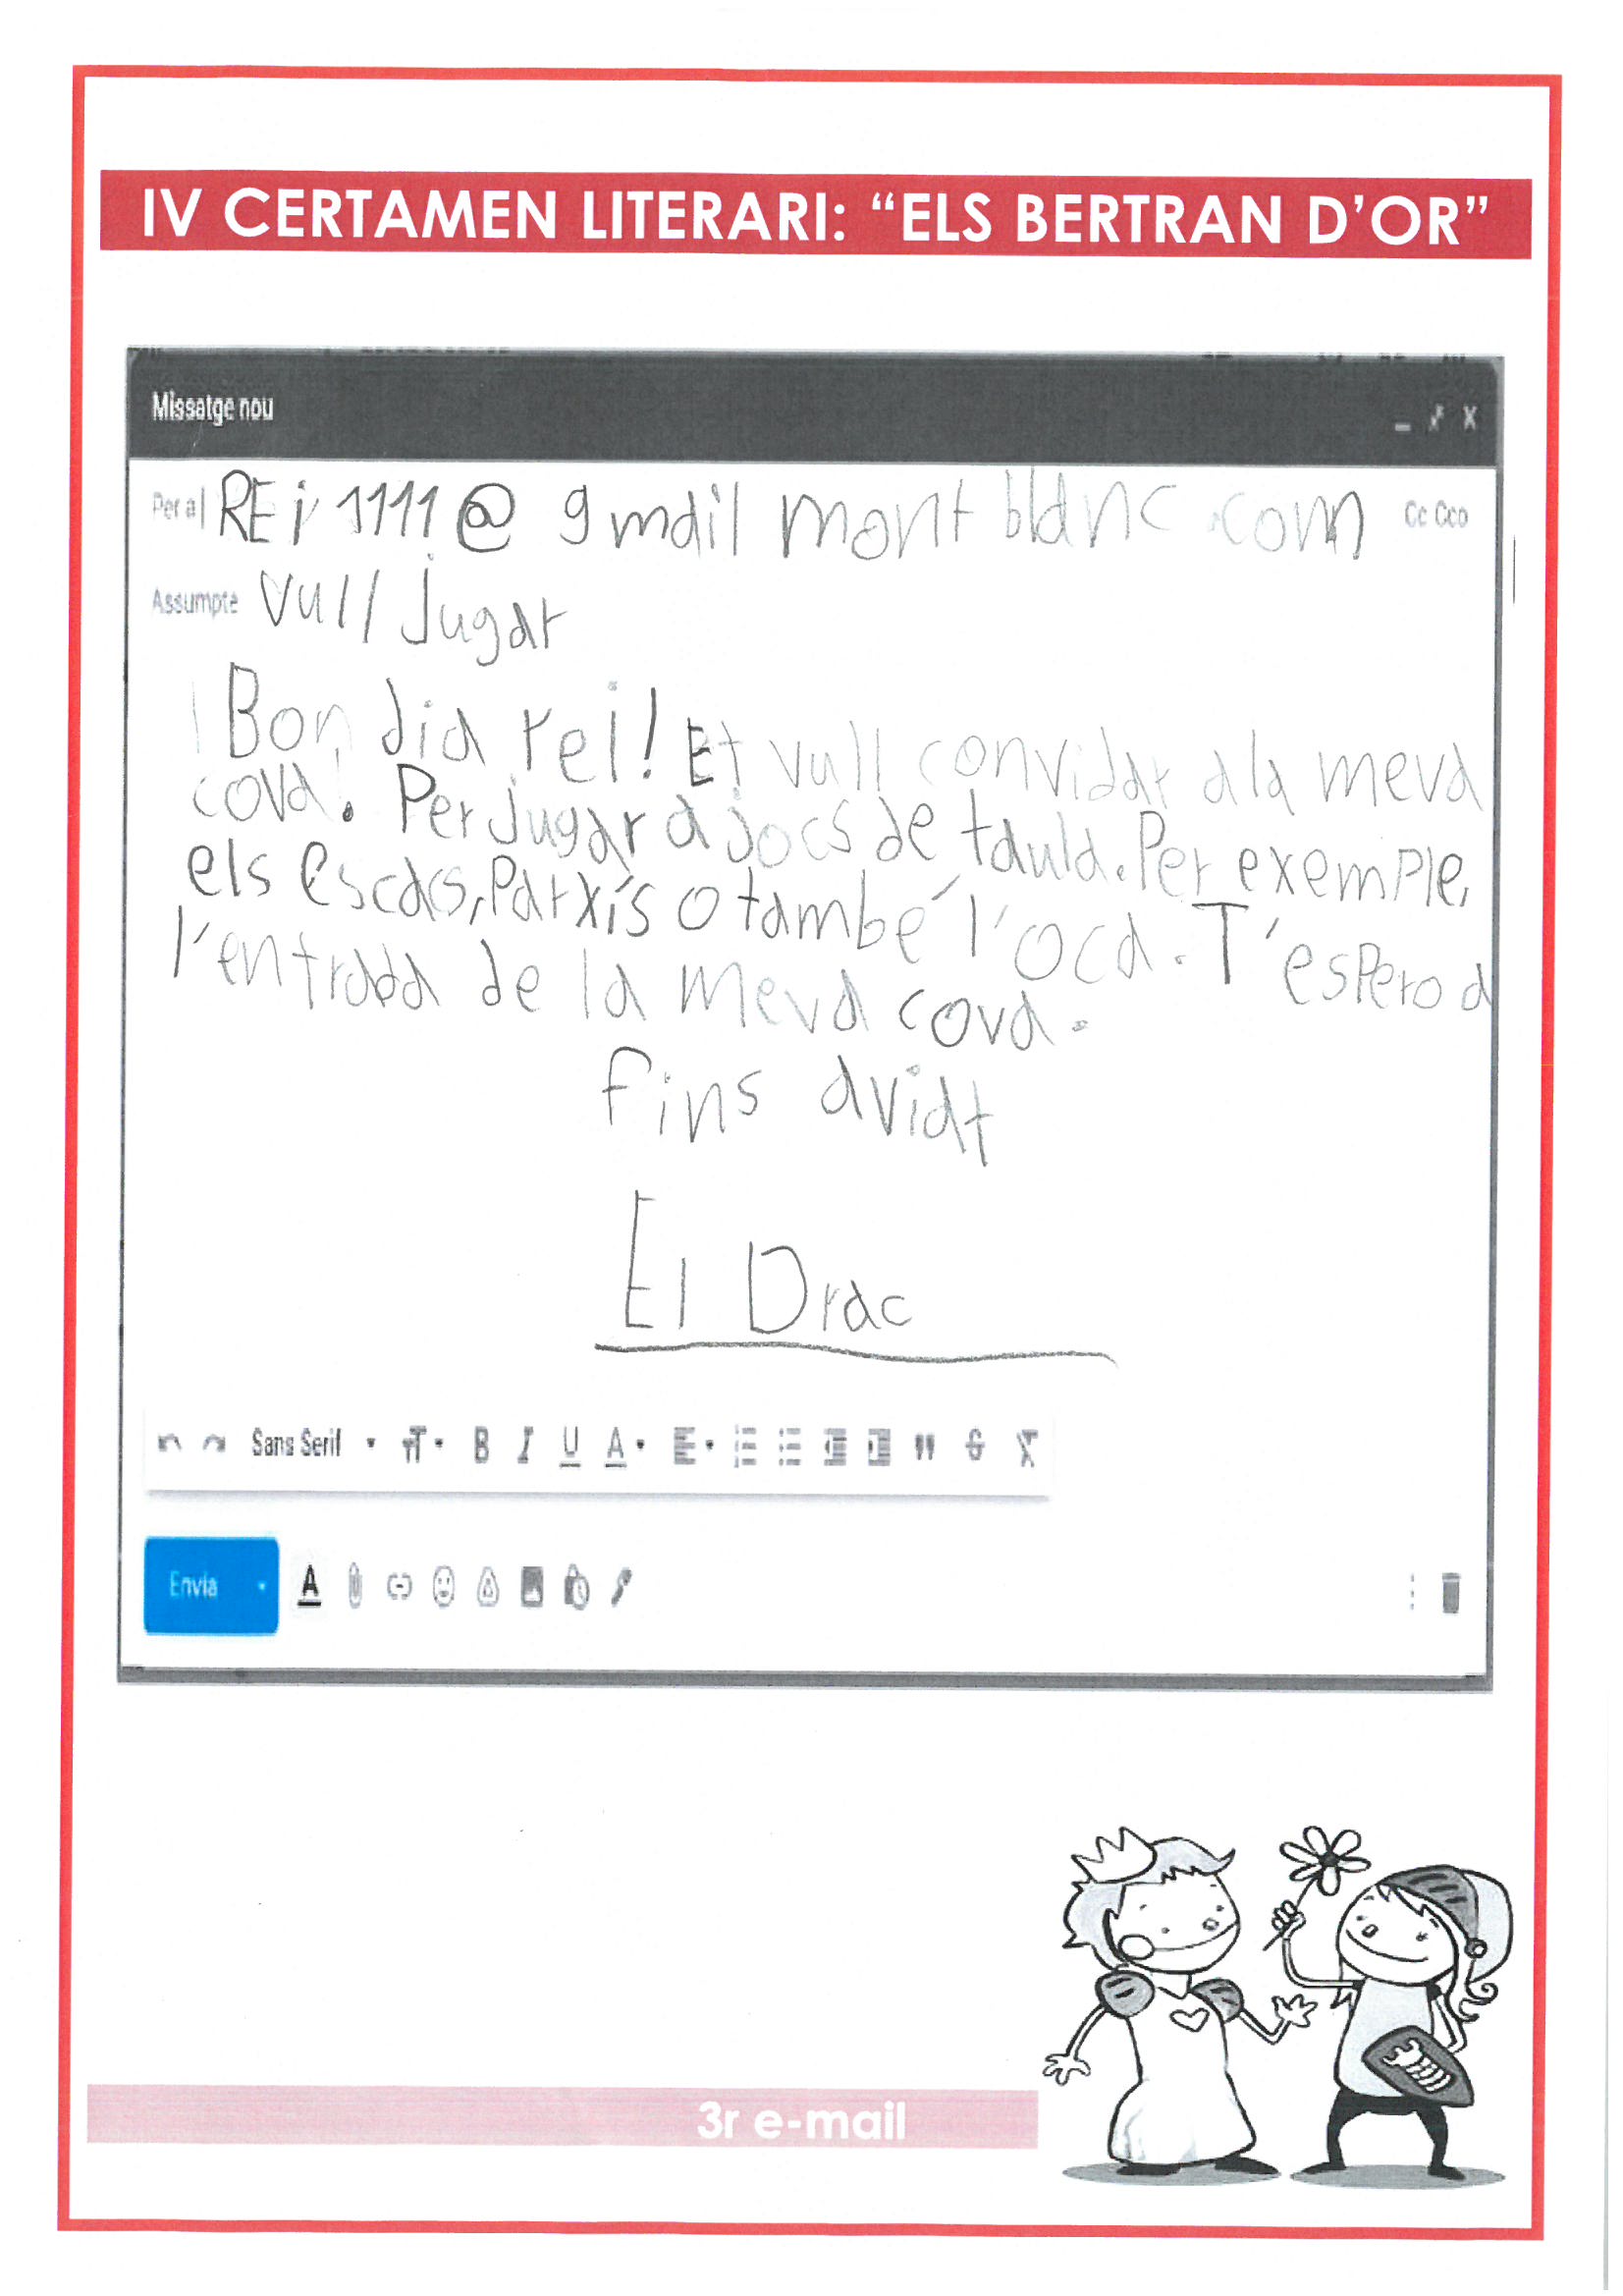 IV CERTAMEN LITERARI: “ELS BERTRAN D’OR”
Missatge nou
Per a REi 1111@ gmail montblanc.com Cc Cco
Assumpte Vull jugar
¡Bon dia rei! Et vull convidar a la meva
cova. Per jugar a jocs de taula. Per exemple,
els escacs, Parxís o també l'oca. T'espero a
l'entrada de la meva cova.
fins aviat
El Drac
Sans Serif
Envia
3r e-mail